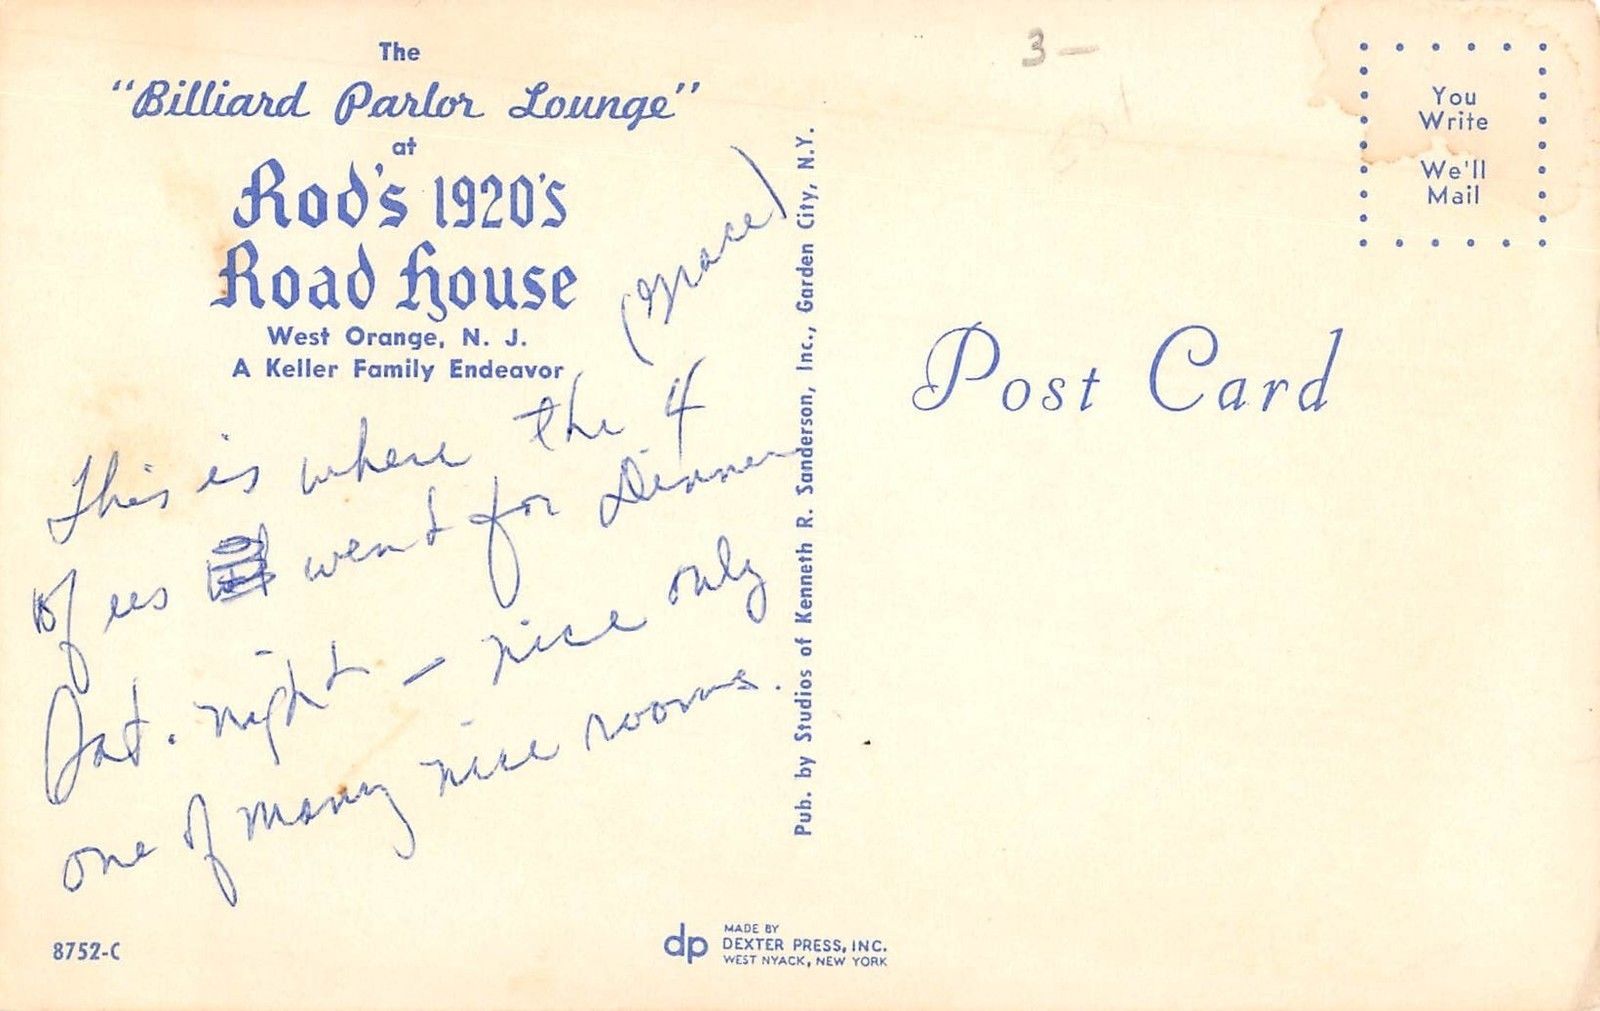 The
"Billiard Parlor Lounge"
at
Rod's 1920's
Road House
West Orange, N. J.
A Keller Family Endeavor
(Grace)
This is where the 4
of us went for Dinner
Sat. night — nice only
one of many nice rooms.
8752-C
Pub. by Studios of Kenneth R. Sanderson, Inc., Garden City, N.Y.
dp
MADE BY
DEXTER PRESS, INC.
WEST NYACK, NEW YORK
3 —
You
Write
We'll
Mail
Post Card